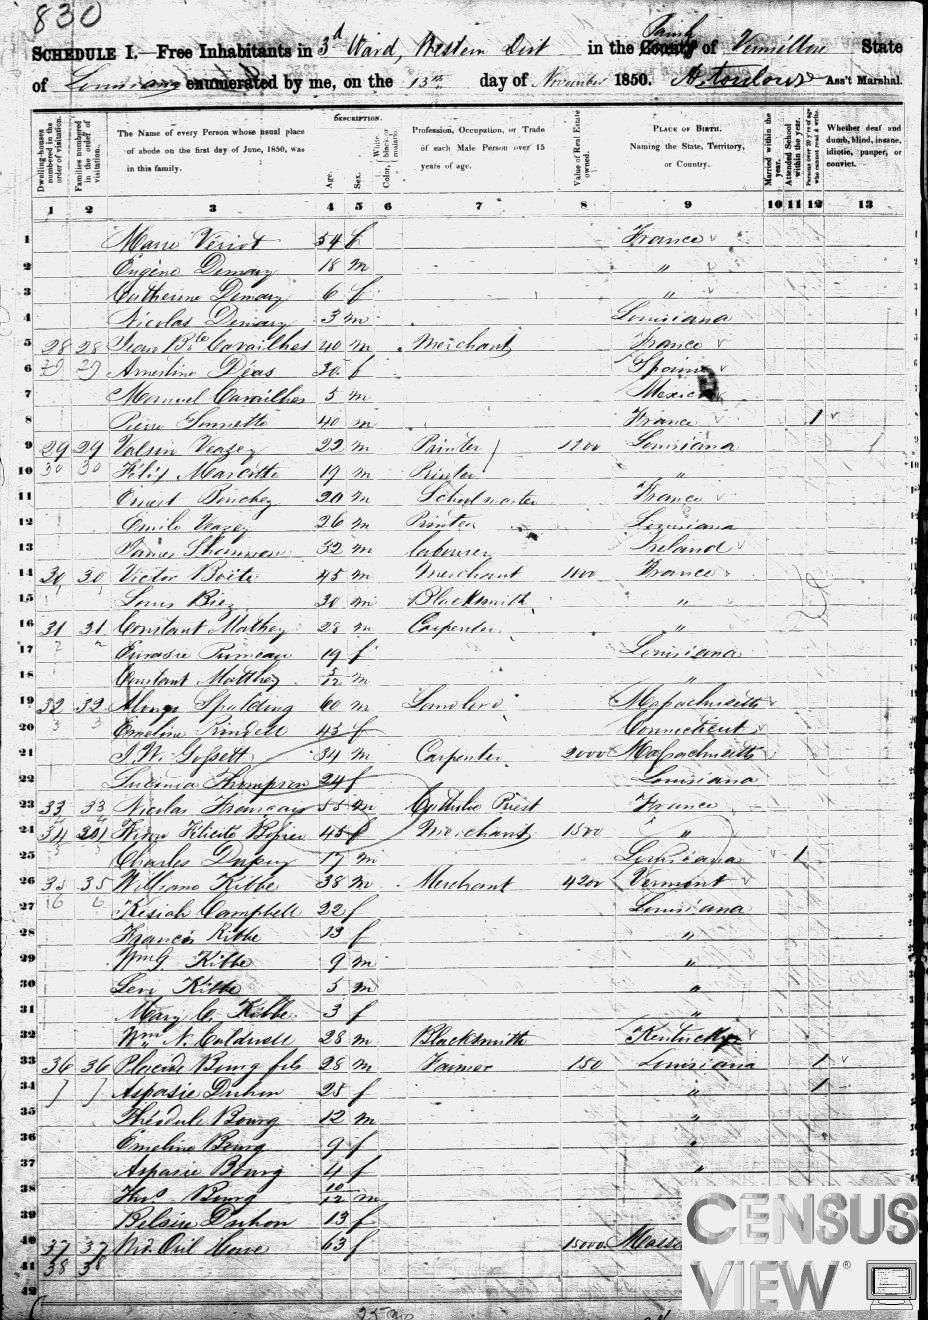 830
SCHEDULE I.—Free Inhabitants in 3d Ward, Western Dist in the County Parish of Vermillion State
of Louisiana enumerated by me, on the 13th day of November 1850. Ass't Marshal.
Dwelling-houses numbered in the order of visitation.
Families numbered in the order of visitation.
The Name of every Person whose usual place of abode on the first day of June, 1850, was in this family.
DESCRIPTION.
Age.
Sex.
Color, White, black or mulatto.
Profession, Occupation, or Trade of each Male Person over 15 years of age.
Value of Real Estate owned.
PLACE OF BIRTH. Naming the State, Territory, or Country.
Married within the year.
Attended School within the year.
Persons over 20 y'rs of age who cannot read & write.
Whether deaf and dumb, blind, insane, idiotic, pauper, or convict.
1 2 3 4 5 6 7 8 9 10 11 12 13
1 54 f France
2 Eugène Demary 18 m "
3 Catherine Demary 6 f "
4 Nicolas Demary 3 m Louisiana
5 28 28 Jean Bte Cavailhes 40 m Merchant France
6 29 29 30 f Spain
7 Manuel Cavailhes 5 m Mexico
8 Pierre 40 m France 1
9 29 29 Valsin Veazey 22 m Printer 1200 Louisiana
10 30 30 19 m Printer "
11 Ernest 20 m Schoolmaster France
12 Emile Veazey 26 m Printer Louisiana
13 James 32 m laborer Ireland
14 30 30 Victor 45 m Merchant 1000 France
15 Louis 30 m Blacksmith "
16 31 31 Constant Mathey 28 m Carpenter "
17 Primeau 19 f Louisiana
18 Constant Matthey 5/12 m "
19 32 32 Alonzo Spalding 60 m Landlord Massachusetts
20 Emeline 43 f Connecticut
21 34 m Carpenter 2000 Massachusetts
22 Lucinda Thompson 24 f Louisiana
23 33 33 Nicolas Français 55 m Catholic Priest France
24 34 45 f Merchant 1500 "
25 Charles Dupuy 17 m Louisiana 1
26 35 35 William Kibbe 38 m Merchant 4200 Vermont
27 Kesiah Campbell 22 f Louisiana
28 Francis Kibbe 13 f "
29 Wm G Kibbe 9 m "
30 Levi Kibbe 5 m "
31 Mary C. Kibbe 3 f "
32 Wm N. Caldwell 28 m Blacksmith Kentucky
33 36 36 Placide Bourg fils 28 m Farmer 150 Louisiana 1
34 Aspasie Duhon 25 f " 1
35 Théodule Bourg 12 m "
36 Emeline Bourg 9 f "
37 Aspasie Bourg 4 f "
38 Bourg 10/12 m
39 Belsire Duhon 13 f
40 37 37 Howe 63 f 15000
41 38 38
42
CENSUS
VIEW®